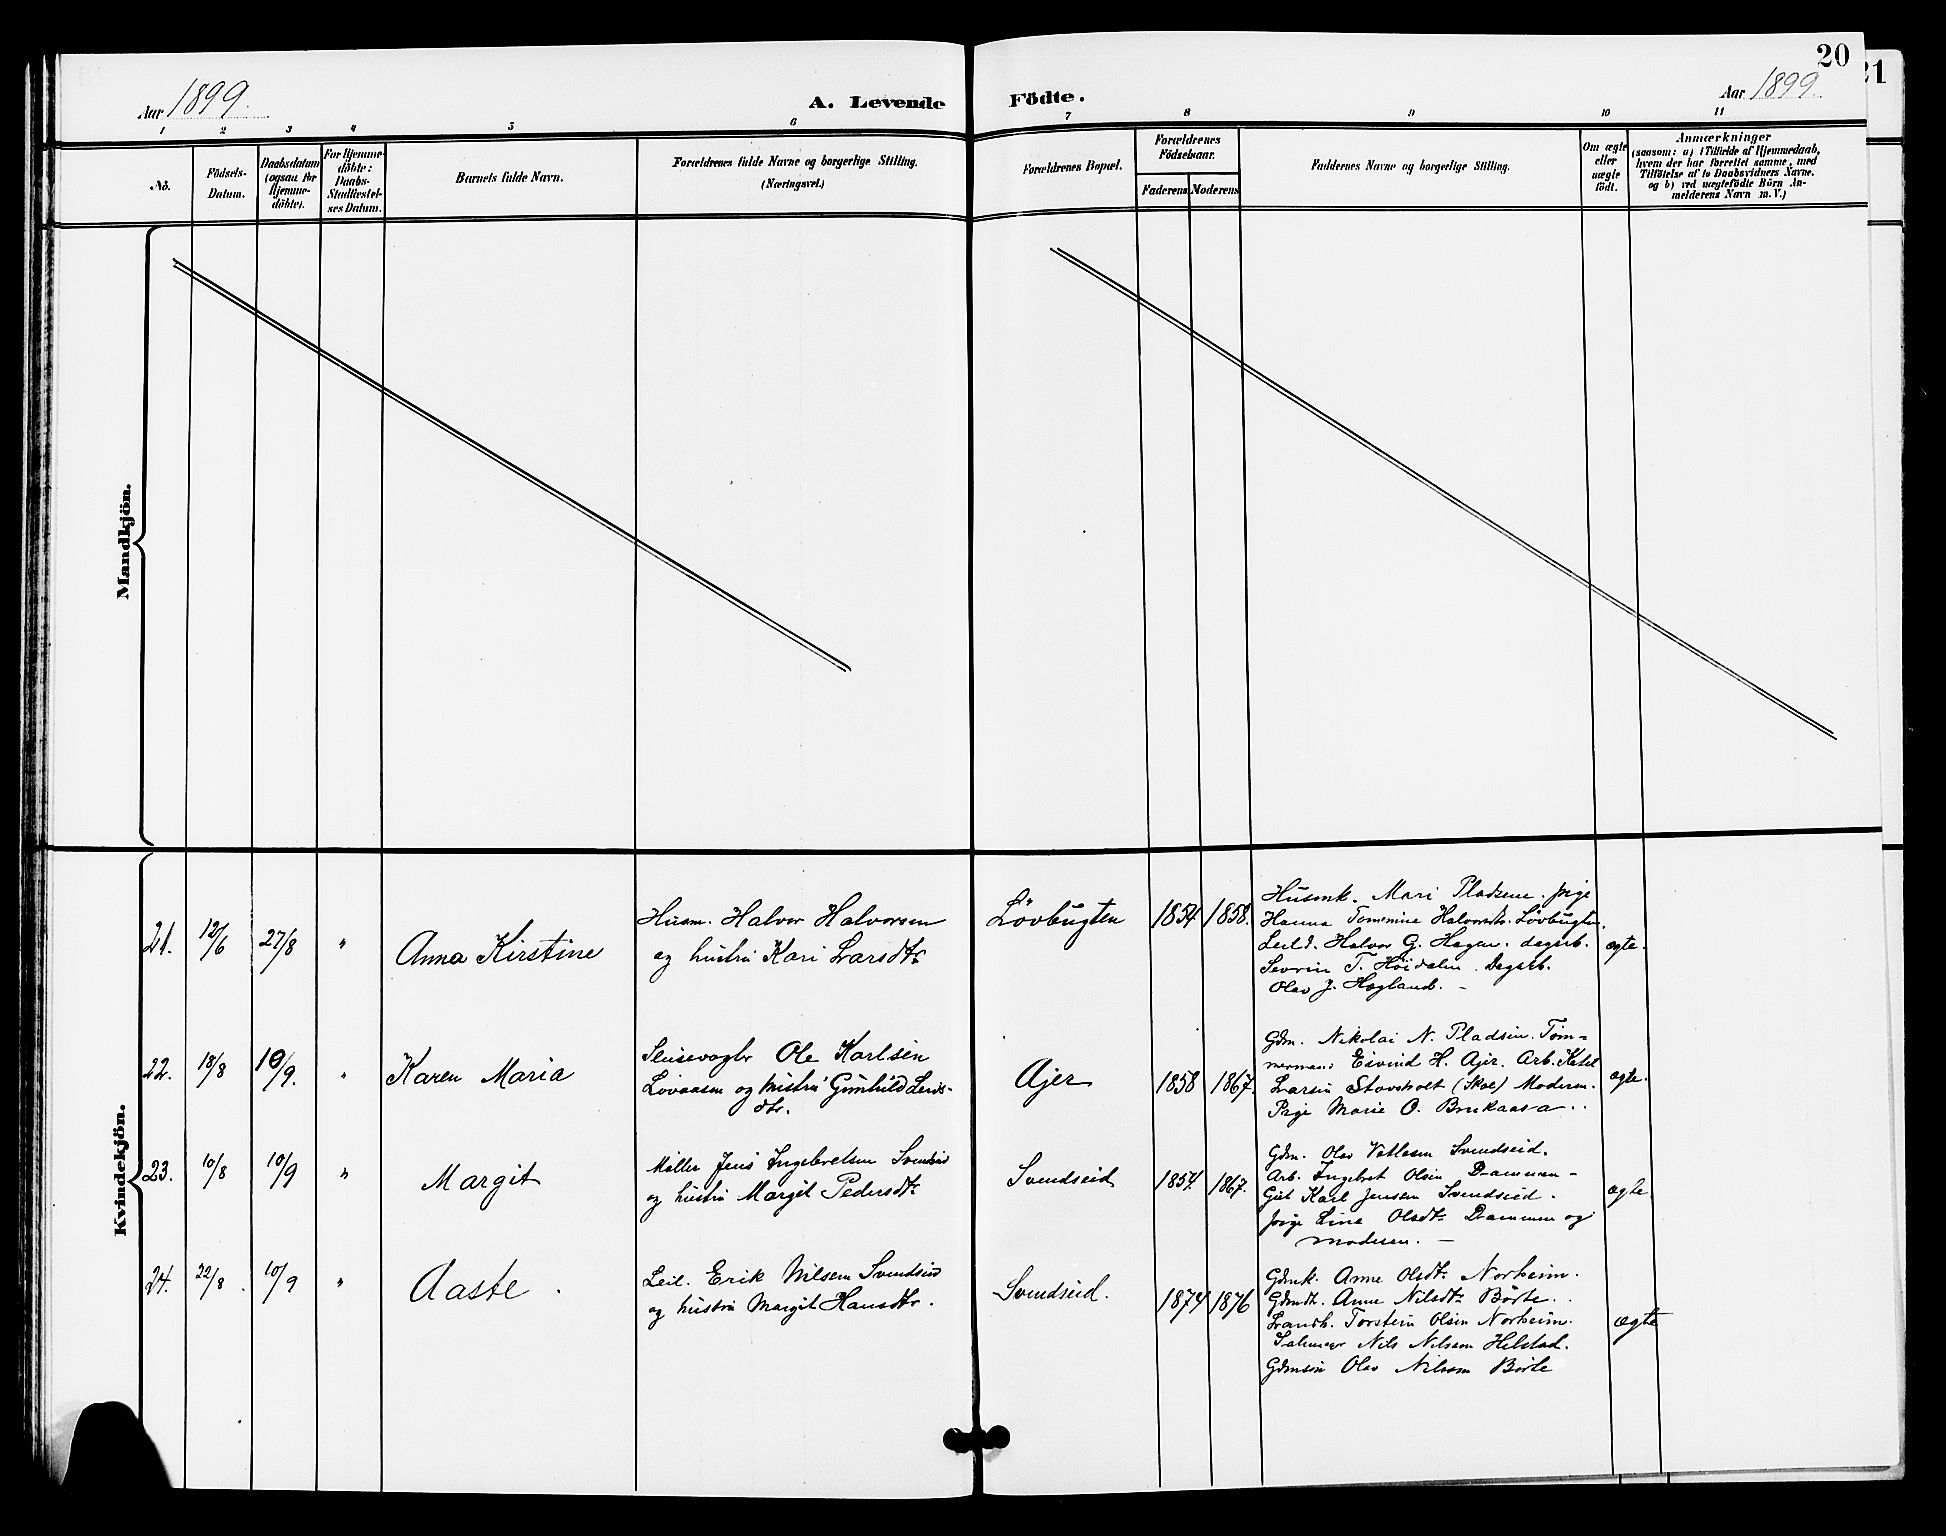 20
21
Aar 1899.
A. Levende Födte.
Aar 1899.
1 2 3 4 5 6 7 8 9 10 11
No.
Födsels-
Datum.
Daabsdatum
(ogsaa for
Hjemme-
döbte).
For Hjemme-
döbte:
Daabs-
Stadfæstel-
ses Datum.
Barnets fulde Navn.
Forældrenes fulde Navne og borgerlige Stilling.
(Næringsvei.)
Forældrenes Bopæl.
Forældrenes
Födselsaar.
Faderens Moderens
Faddernes Navne og borgerlige Stilling.
Om ægte
eller
uægte
födt.
Anmærkninger
(saasom: a) i Tilfælde af Hjemmedaab,
hvem der har forrettet samme, med
Tilföielse af to Daabsvidners Navne.
og b) ved uægtefödte Börn An-
melderens Navn m. V.)
Mandkjön.
Kvindekjön.
21. 12/6 27/8 " Anna Kirstine
Husm. Halvor Halvorsen
og hustru Kari Larsdtr
Lövbugten 1854 1858.
Husmk. Mari Pladsene. pige
Hanna Tomine Halvorsdtr. Lövbugten.
Leild. Halvor G. Hagen. dagarb.
Sevrin T. Höidalen. Dagarb.
Olav J. Hogland. -
ægte.
22. 18/8 10/9. " Karen Maria
Slusevogter Ole Karlsen
Lövaasen og hustru Gunhild Lars-
dtr.
Ajer 1858 1867.
Gdm. Nikolai N. Pladsen. Töm-
mermand Eivind H. Ajer. Arb. Ketil
Larsen Stavsholt (Skoe) Moderen.
Pige Marie O. Brukaasa..
ægte.
23. 10/8 10/9 " Margit
Möller Jens Ingebretsen Svendseid
og hustru Margit Pedersdtr
Svendseid 1854. 1867.
Gdm. Olav Vetlesen Svendseid.
Arb. Ingebret Olsen Dammen -
Gut Karl Jensen Svendseid.
pige Line Olsdtr Dammen og
moderen. -
ægte.
24. 22/8. 10/9 " Aaste.
Leil. Erik Nilsen Svendseid
og hustru Margit Hansdtr.
Svendseid. 1874 1876
Gdmk. Anne Olsdtr Norheim.
Gdmdt. Anne Nilsdtr Börte..
Landh. Torstein Olsen Norheim.
Salmager Nils Nilsen Helstad.
Gdmsön Olav Nilsen Börte
ægte